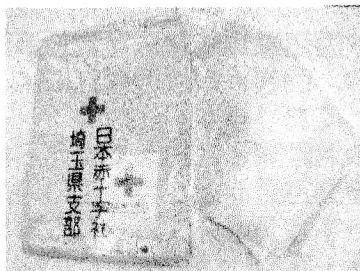 日本赤十字社
埼玉県支部